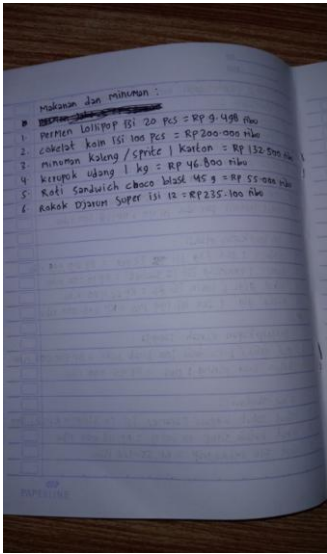 Makanan dan minuman :
1. Permen Lollipop isi 20 pcs = Rp 9.498 ribu
2. cokelat koin isi 100 pcs = Rp200.000 ribu
3. minuman kaleng / sprite 1 karton = Rp 132.500 ribu
4 kerupuk udang 1 kg = Rp 46.800 ribu
5 Roti Sandwich choco blast 45 g = Rp 55.000 ribu
6 Rokok Djarum Super isi 12 = Rp235.100 ribu
PAPERLINE